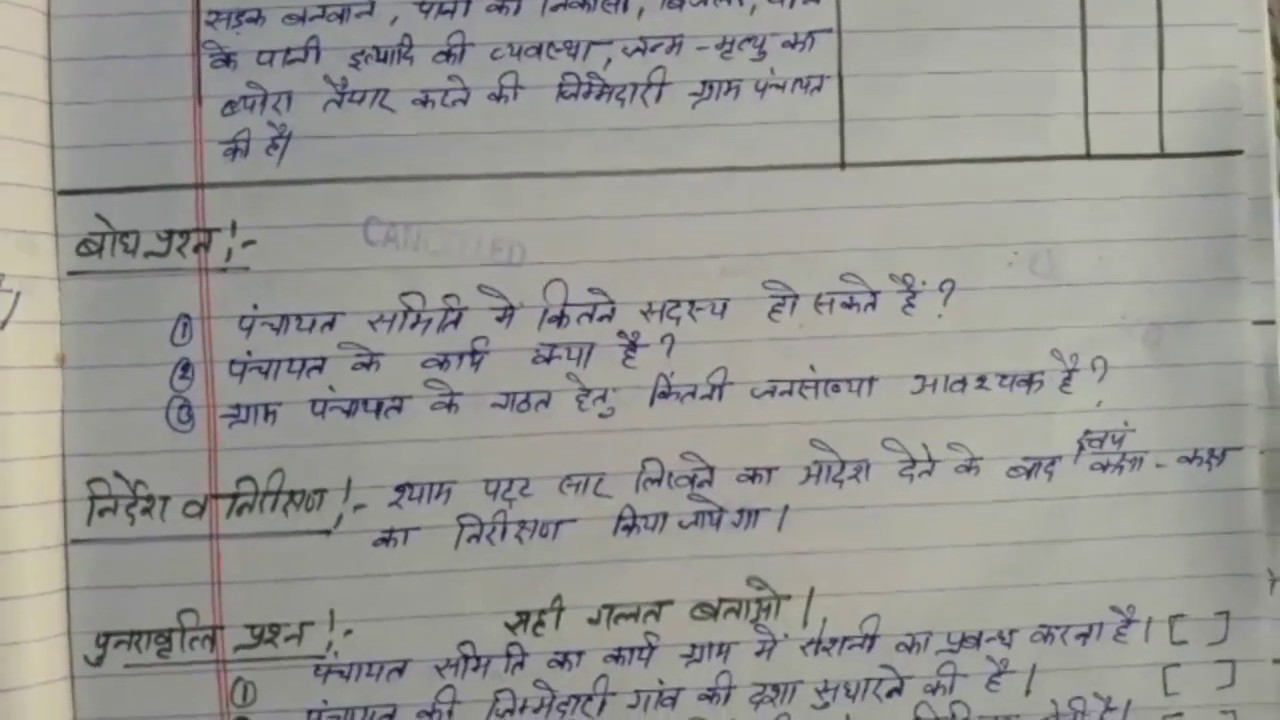 सड़क बनवाने, पानी की निकासी,
के पानी इत्यादि की व्यवस्था, जन्म-मृत्यु का
ब्योरा तैयार करने की जिम्मेदारी ग्राम पंचायत
की है।
बोध प्रश्न!-
CANCELLED
① पंचायत समिति में कितने सदस्य हो सकते हैं?
② पंचायत के कार्य क्या है?
③ ग्राम पंचायत के गठन हेतु कितनी जनसंख्या आवश्यक है?
स्वयं
निर्देश व निरीक्षण!- श्याम पट्ट सार लिखने का आदेश देने के बाद - कक्ष
का निरीक्षण किया जायेगा।
पुनरावृत्ति प्रश्न!- सही गलत बताओ।
① पंचायत समिति का कार्य ग्राम में रोशनी का प्रबन्ध करना है। [ ]
पंचायत की जिम्मेदारी गांव की दशा सुधारने की है। [ ]